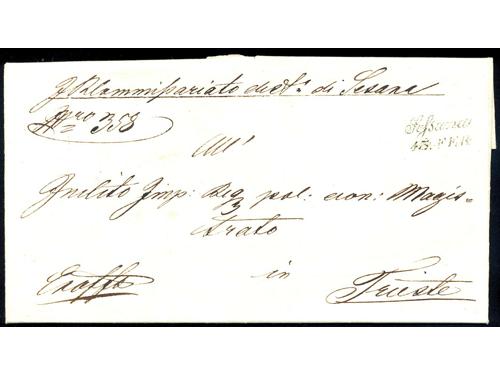 I R Commissariato distr. di Sesana
Nro 358
Sessana
All'
Inclito Imp: Reg pol: econ: Magis=
trato
in
Exoffo
Trieste